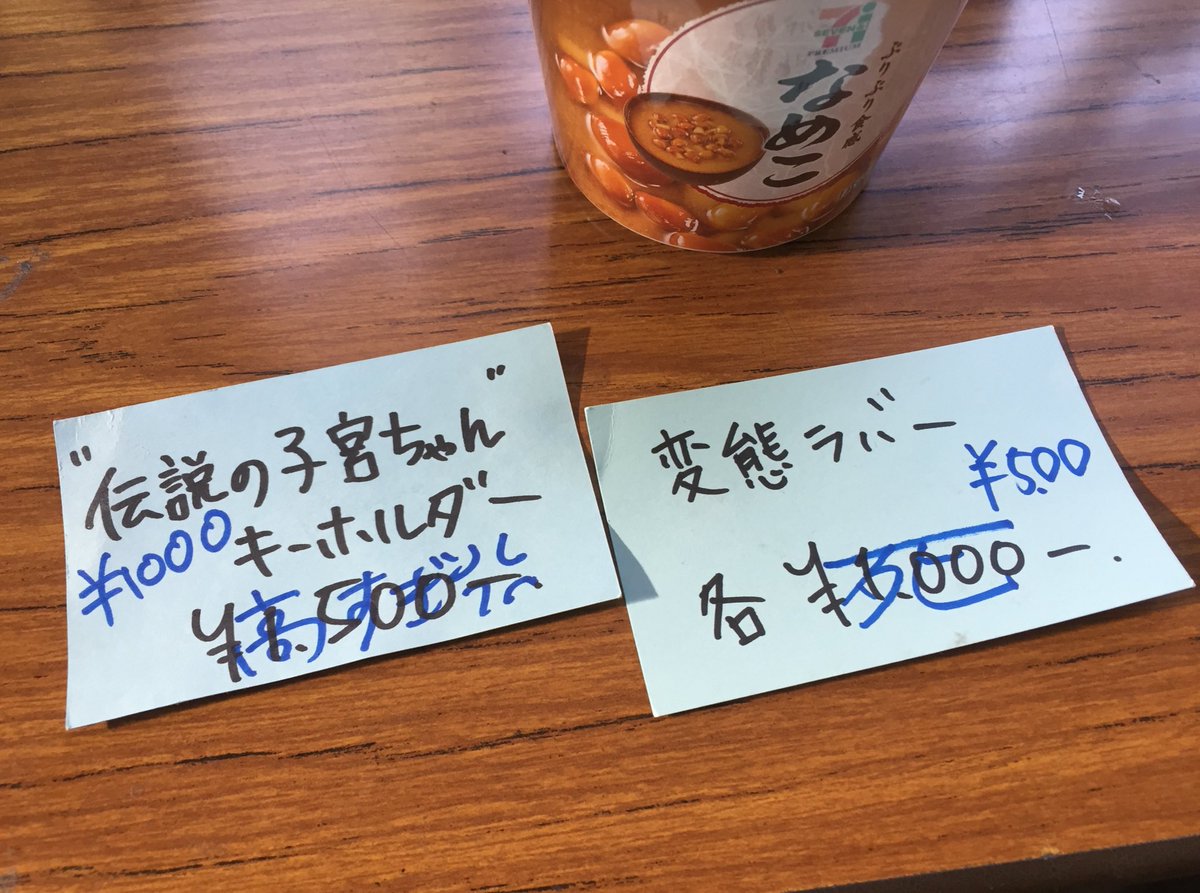 SEVEN&i
PREMIUM
ぷりぷり食感
なめこ
"伝説の子宮ちゃん"
キーホルダー
¥1000
¥1,500
高すぎ
変態ラバー
¥500
各 ¥1,000ー.